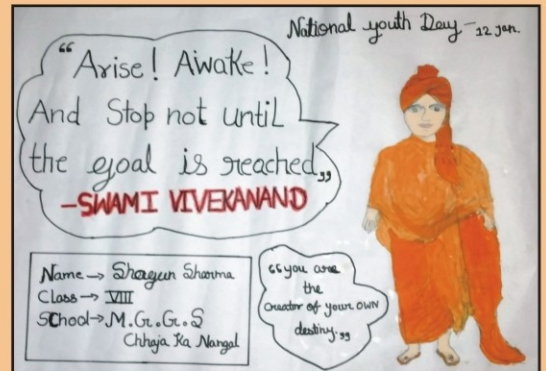 National youth Day - 12 jan.
“Arise! Awake!
And Stop not until
the goal is reached”
-SWAMI VIVEKANAND
Name → Shagun Sharma
Class → VIII
School → M.G.G.S
Chhaja Ka Nangal
“you are
the
Creator of your OWN
destiny.”